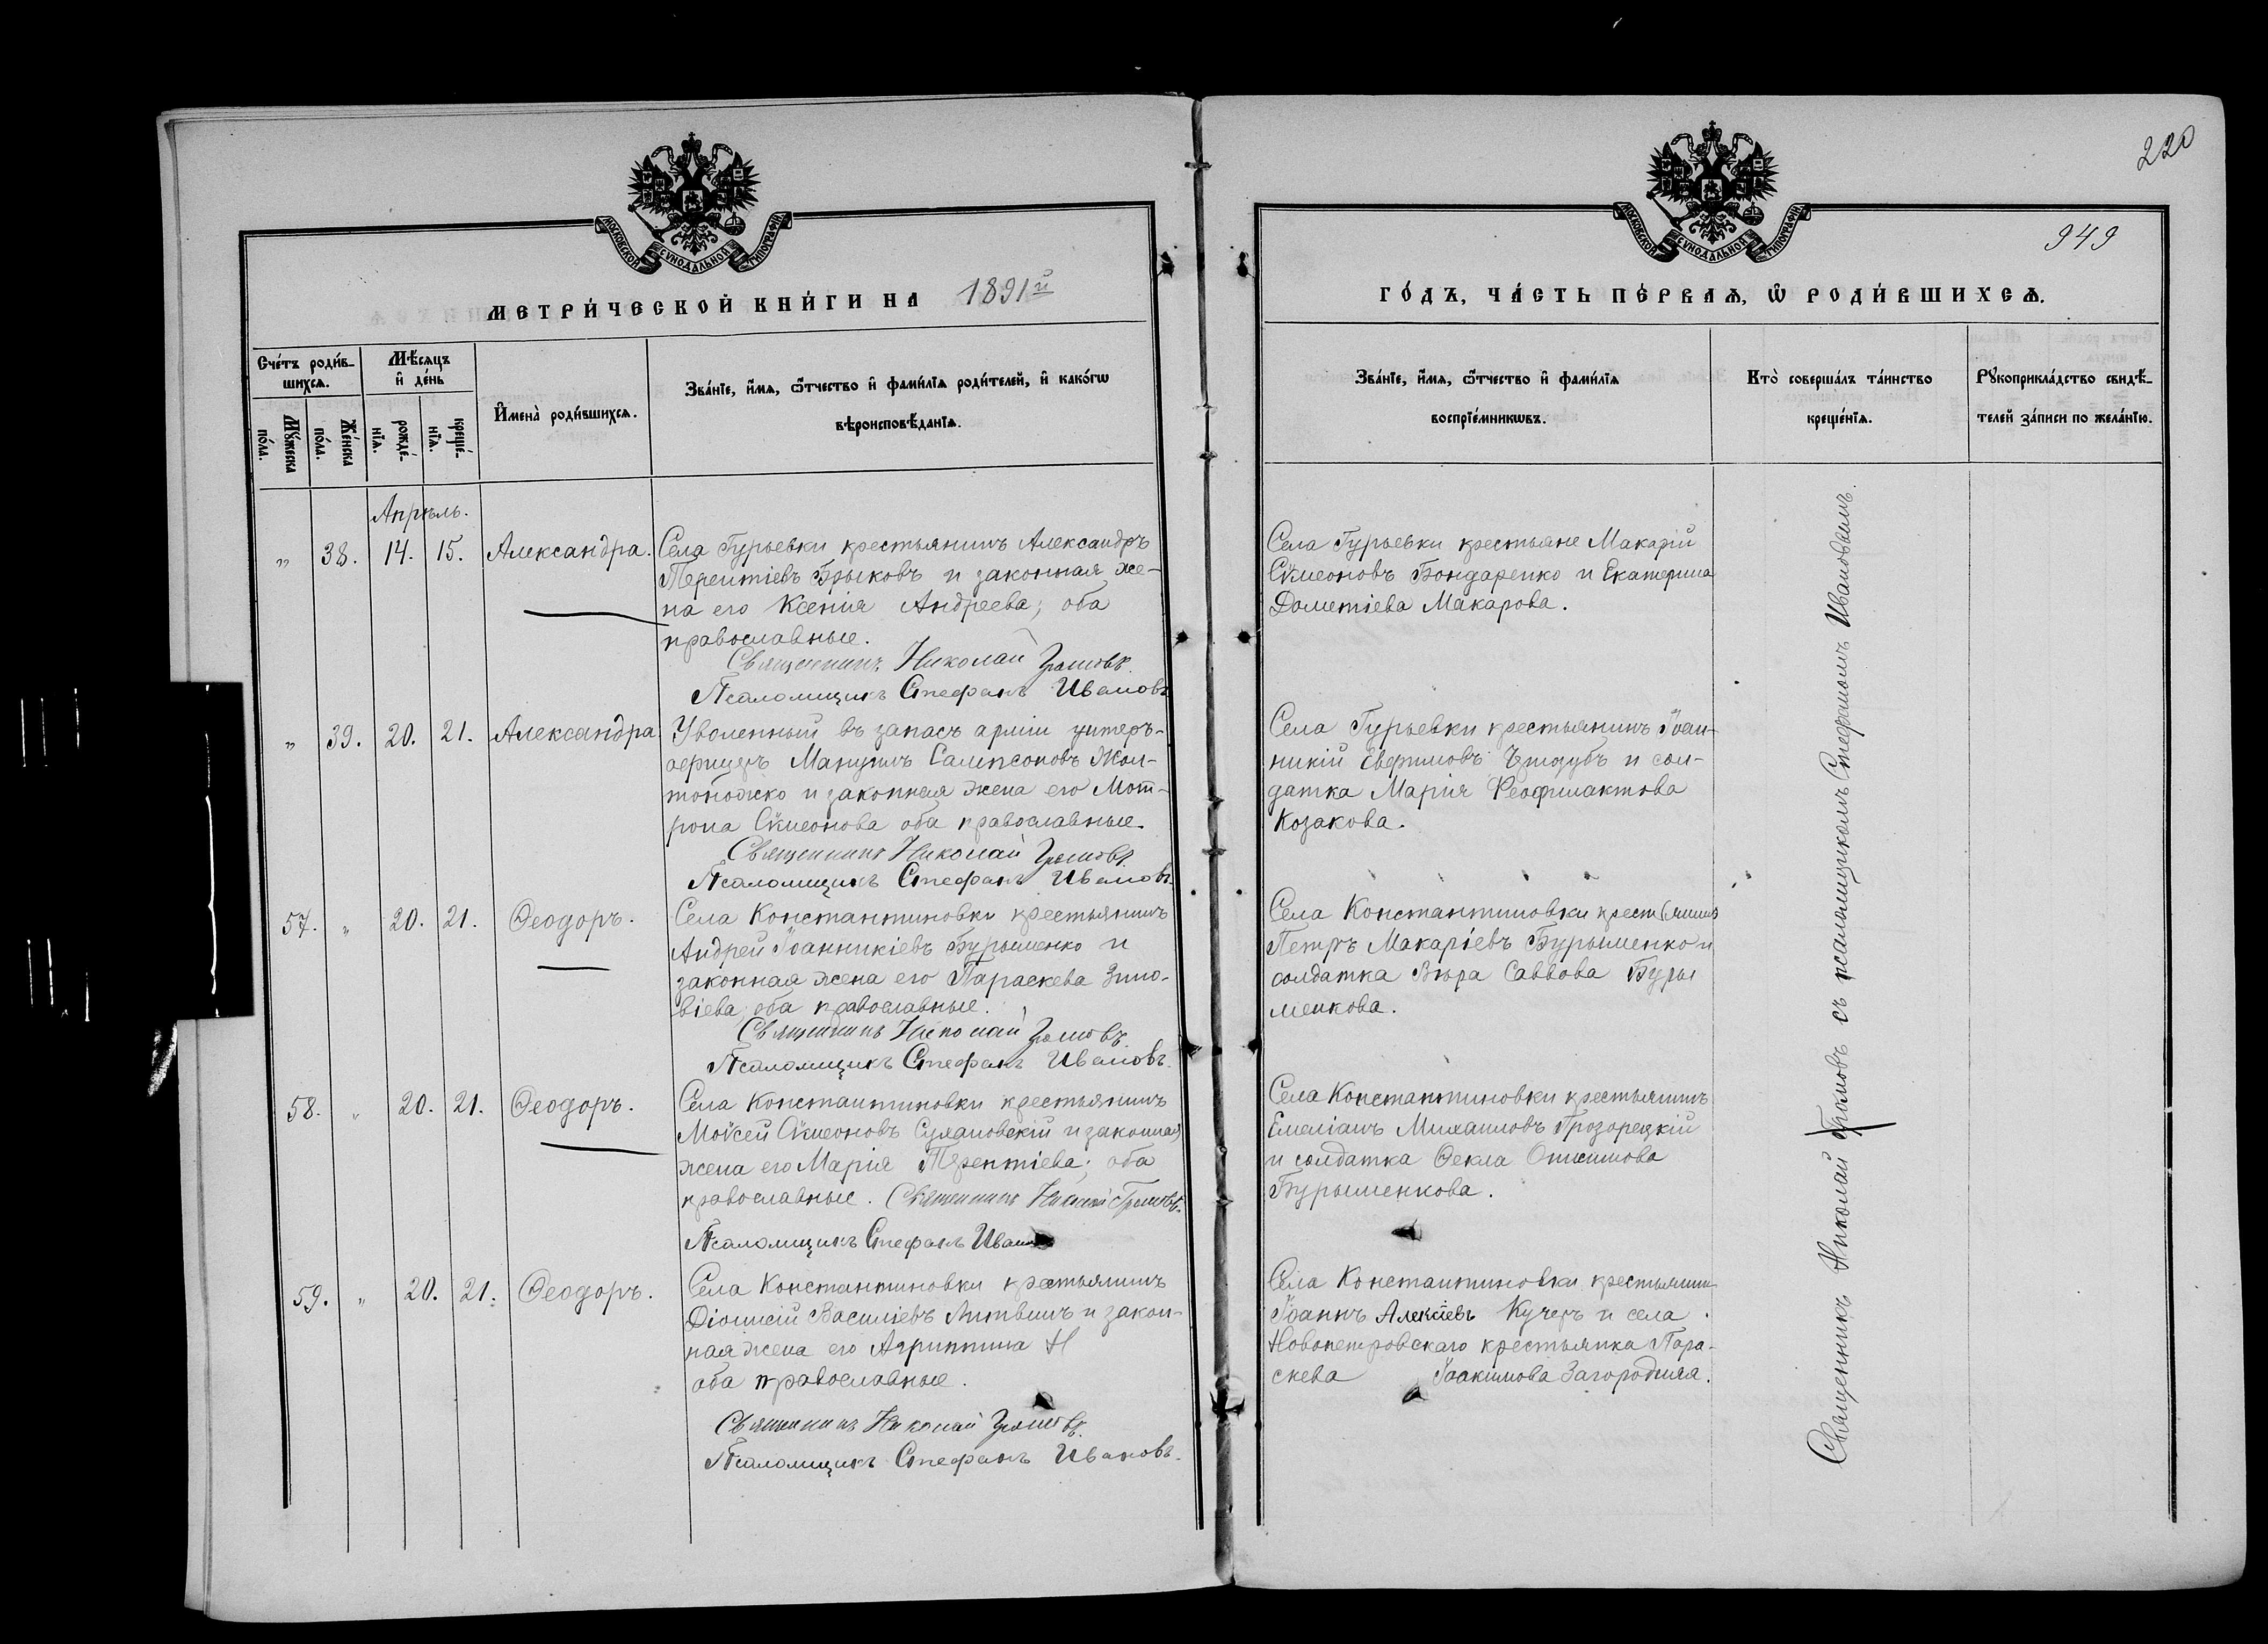 220
949
МОСКОВСКОЙ СѴНОДАЛЬНОЙ ТИПОГРАФІИ
МОСКОВСКОЙ СѴНОДАЛЬНОЙ ТИПОГРАФІИ
МЕТРИ́ЧЕСКОЙ КНИ́ГИ НА 1891й
ГО́ДЪ, ЧА́СТЬ ПЕ́РВАѦ, Ѽ РОДИ́ВШИХСѦ.
Сче́тъ роди́в-
шихсѧ.
Мꙋ́жеска
по́ла.
Же́нска
по́ла.
Мѣ́сѧцъ
и҆ де́нь
рожде́-
нїѧ.
креще́-
нїѧ.
И҆мена̀ роди́вшихсѧ.
Зва́нїе, и҆́мѧ, ѻ҆́тчество и҆ фами́лїѧ роди́телей, и҆ како́гѡ
вѣроисповѣ́данїѧ.
Зва́нїе, и҆́мѧ, ѻ҆́тчество и҆ фами́лїѧ
воспрїе́мникѡвъ.
Кто̀ соверша́лъ та́инство
креще́нїѧ.
Рꙋкоприкла́дство свидѣ́-
телей за́писи по жела́нїю.
Апрѣль.
" 38. 14. 15. Александра.
Села Гурьевки крестьянинъ Александръ
Терентіевъ Брыковъ и законная же-
на его Ксенія Андреева; оба
православные.
Священникъ Николай Громовъ.
Псаломщикъ Стефанъ Ивановъ
Села Гурьевки крестьяне Макарій
Сѵмеоновъ Бондаренко и Екатерина
Дометіева Макарова.
" 39. 20. 21. Александра
Уволенный въ запасъ арміи унтеръ-
офицеръ Мануилъ Сампсоновъ Жол-
тоножко и законная жена его Мот-
рона Сѵмеонова оба православные.
Священникъ Николай Громовъ.
Псаломщикъ Стефанъ Ивановъ.
Села Гурьевки крестьянинъ Іоан-
никій Евфимовъ и сол-
датка Марія Феофилактова
Козакова.
57. " 20. 21. Ѳеодоръ.
Села Константиновки крестьянинъ
Андрей Іоанникіевъ Бурыменко и
законная жена его Параскева Зино-
віева, оба православные.
Священникъ Николай Громовъ.
Псаломщикъ Стефанъ Ивановъ.
Села Константиновки крестьянинъ
Петръ Макаріевъ Бурыменко и
солдатка Вѣра Саввова Буры
менкова.
58. " 20. 21. Ѳеодоръ.
Села Константиновки крестьянинъ
Моѵсей Сѵмеоновъ Сулановскій и законная
жена его Марія Терентіева; оба
православные. Священникъ Николай Громовъ.
Псаломщикъ Стефанъ Ивановъ
Села Константиновки крестьянинъ
Емеліанъ Михаиловъ Прозорецкій
и солдатка Ѳекла Онисимова
Бурыменкова.
59. " 20. 21. Ѳеодоръ.
Села Константиновки крестьянинъ
Діонисій Василіевъ Литвинъ и закон-
ная жена его Агриппина Н
оба православные.
Священникъ Николай Громовъ.
Псаломщикъ Стефанъ Ивановъ.
Села Константиновки крестьянинъ
Іоаннъ Алексіевъ Кучеръ и села
Новопетровскаго крестьянка Пара-
скева Іоакимова Загородняя.
Священникъ Николай Громовъ съ псаломщикомъ Стефаномъ Ивановымъ.